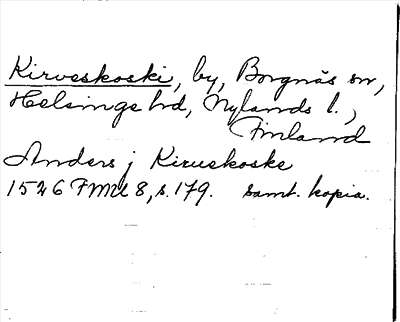 Kirveskoski, by, Borgnäs sn,
Helsinge hd, Nylands l.,
Finland
Anders j Kirueskoske
1526 FMU 8, s. 179. Samt. kopia.